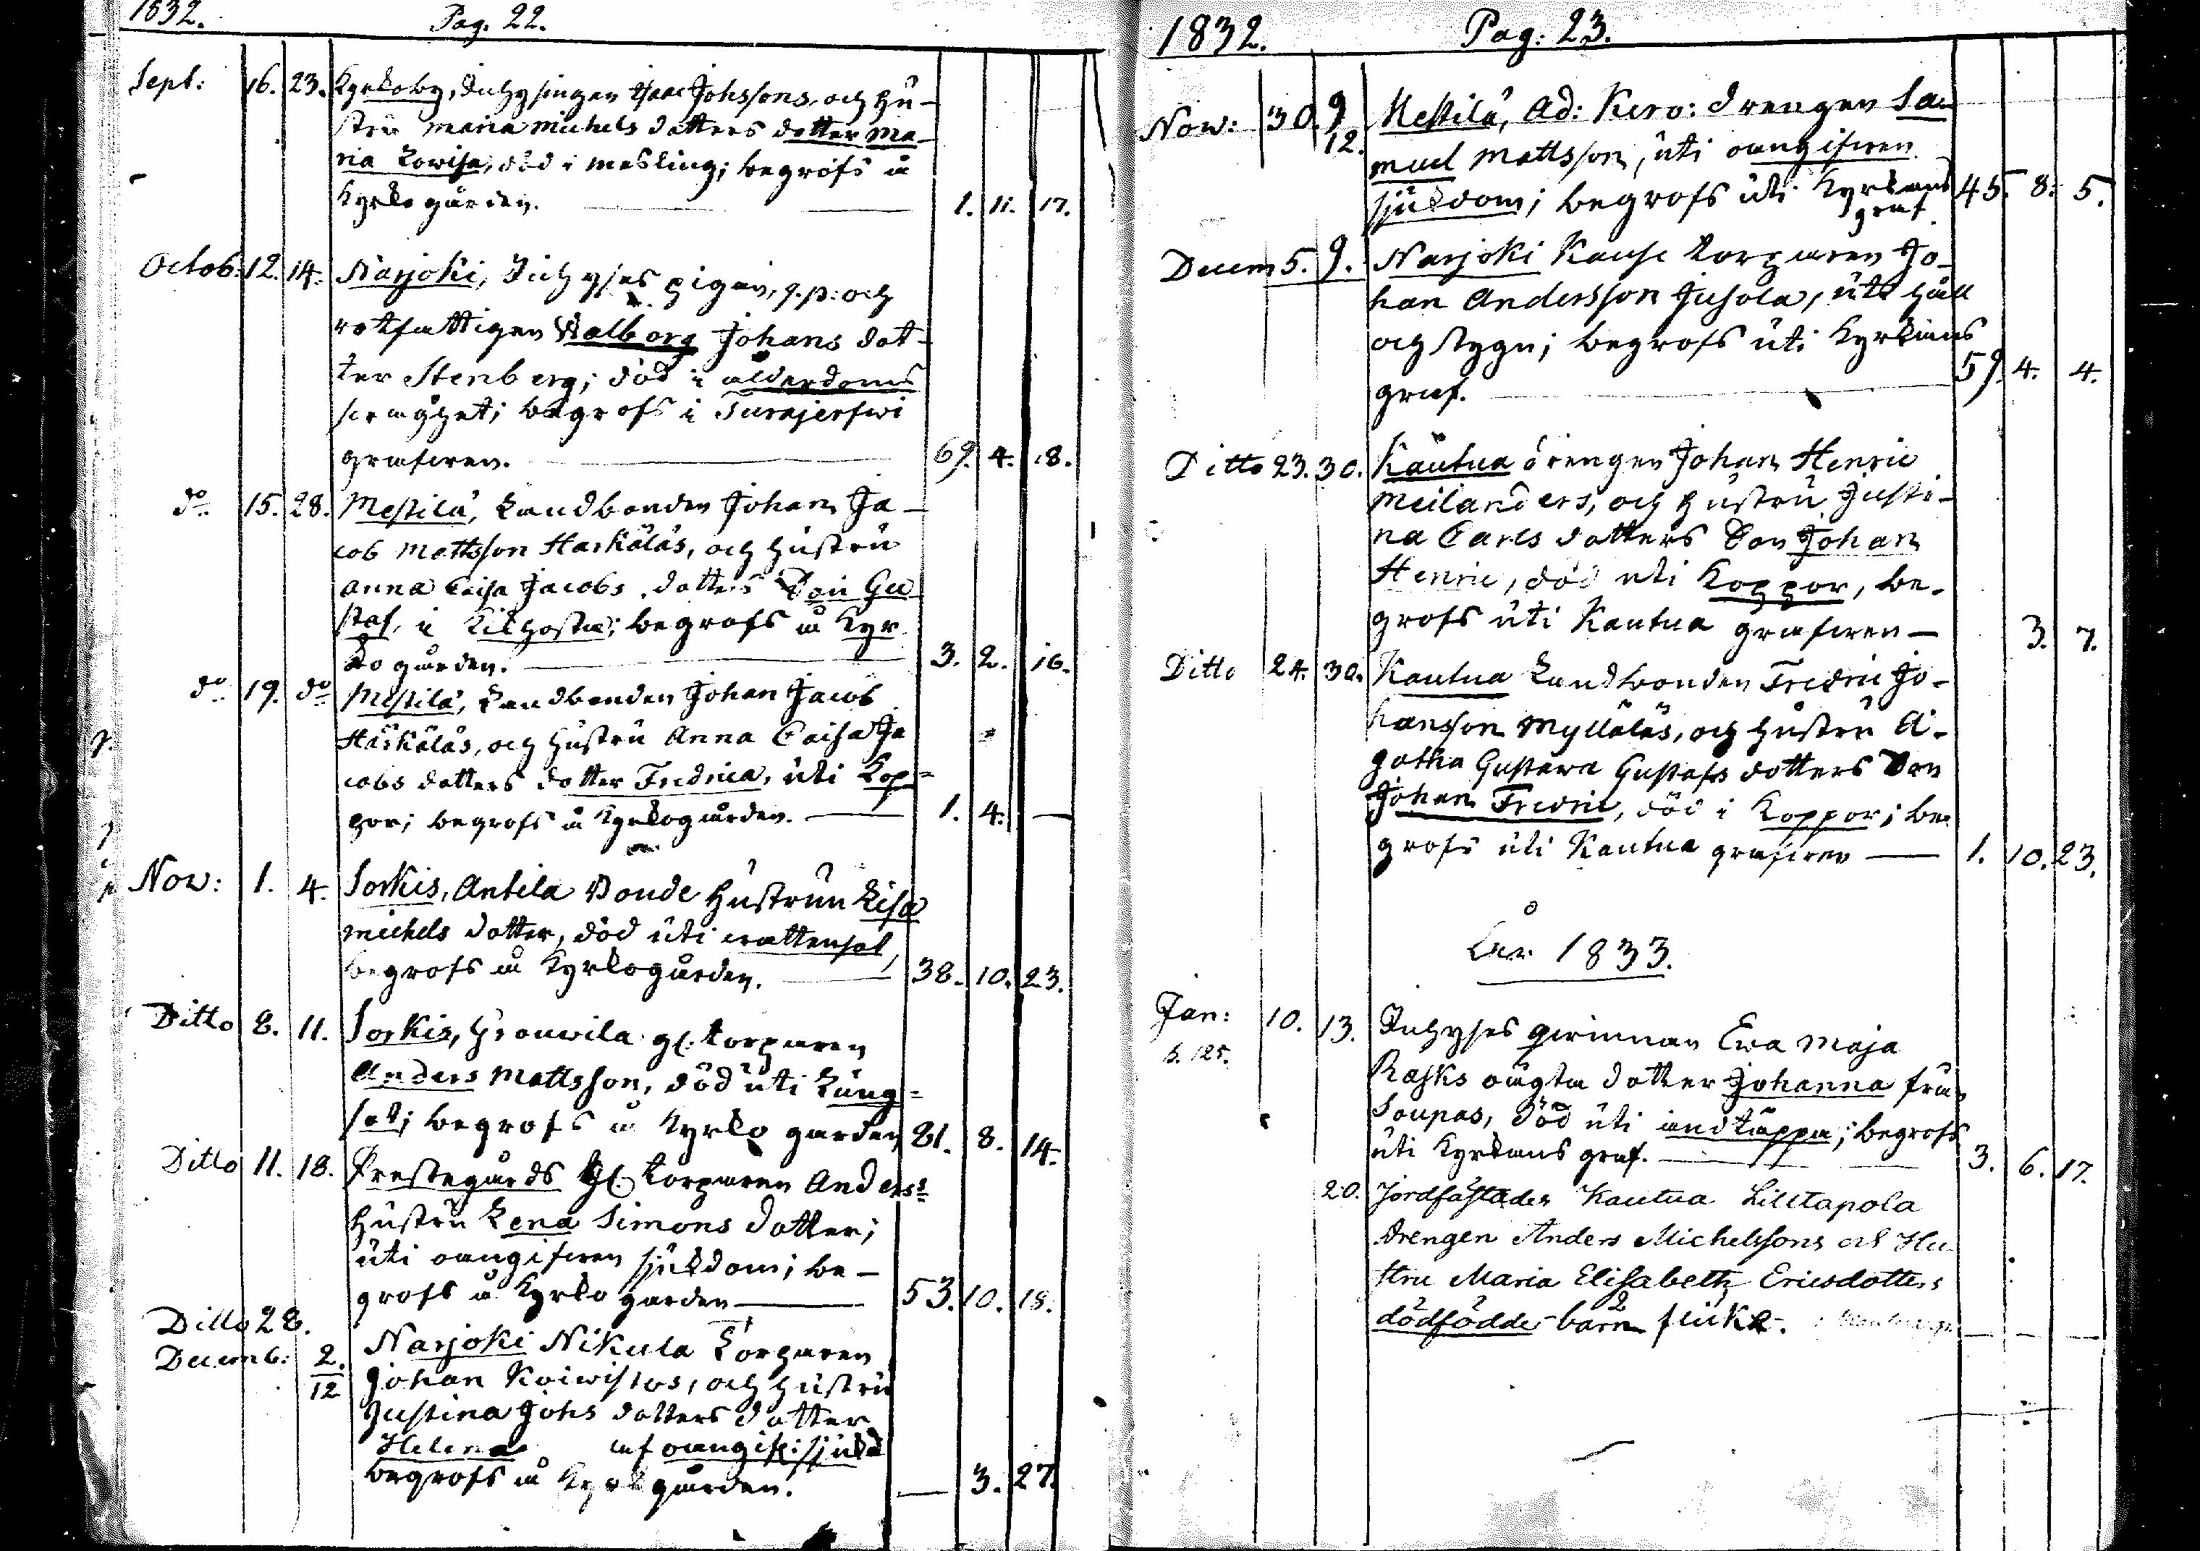 1832. Pag. 22.
Sept: 16. 23. Kyrkoby, Inhysingen Isaac Johssons, och Hu-
stru Maria Michels dotters dotter Ma-
ria Lowisa, död i messling; begrofs å
Kyrkogården. 1. 11. 17.
Octob: 12. 14. Narjoki, Inhyses pigan, q.p: och
rotfattigen Walborg Johans dot-
ter Stenberg; död i ålderdoms
kraghet; begrofs i Turajerfwi
grafwen. 69. 4. 18.
do 15. 28. Mestilä, Landbonden Johan Ja-
cob Mattsson Härkäläs, och Hustru
Anna Caisa Jacobs dotters Son Gu
staf, i Kikhosta; begrofs å Kyr
kogården. 3. 2. 16.
do 19. do Mestilä, Landbonden Johan Jacob
Härkäläs, och Hustru Anna Caisa Ja
cobs dotters dotter Fredrica, uti Kop-
por; begrofs å Kyrkogården. 1. 4. —
Now: 1. 4. Sorkis, Antila Bonde Hustrun Lisa
Michels dotter, död uti wattensot,
begrofs å Kyrkogården. 38. 10. 23.
Ditto 8. 11. Sorkis, gl. torparen
Anders Mattsson, död uti Lung-
sot; begrofs å Kyrko garden 81. 8. 14.
Ditto 11. 18. Prestegårds gl. torparen Anders:
Hustru Lena Simons dotter;
uti oangifwen sjukdom; be-
grofs å Kyrko garden 53. 10. 18.
Ditto 28.
Decemb: 2. Narjoki Nikula Torparen
12 Johan Koiwistos, och Hustru
Justina Johs dotters dotter
Helena af oangif: sjukd
begrofs å Kyrkgården. — 3. 27.
1832. Pag: 23.
Now: 30. 9 Mestilä, Ad: Kero: drengen Sa-
12. muel Mattsson, uti oangifwen
sjukdom; begrofs uti Kyrkans 45. 8. 5.
graf
Decem 5. 9. Narjoki Kause torparen Jo-
han Andersson Jusola, uti håll
och stygn; begrofs uti Kyrkans
graf. 59. 4. 4.
Ditto 23. 30. Kautua drengen Johan Henric
Meilanders, och Hustru Justi-
na Carls dotters Son Johan
Henric, död uti Koppor, be-
grofs uti Kautua grafwen — 3. 7.
Ditto 24. 30. Kautua Landbonden Fredric Jo-
hansson Mylläläs, och Hustru A-
gatha Gustawa Gustafs dotters Son
Johan Fredric, död i Koppor; be-
grofs uti Kautua grafwen — 1. 10. 23.
År 1833.
Jan: 10. 13. Inhyses qwinnan Ewa Maja
s. 125. Rasks oägta dotter Johanna från
Soupas, död uti andtäppa; begrofs
uti Kyrkans graf. 3. 6. 17.
20. Jordfästades Kautua Lilltapola
Drengen Anders Michelssons och Hu
stru Maria Elisabeth Ericsdotters
2
dödfödde barn flick.